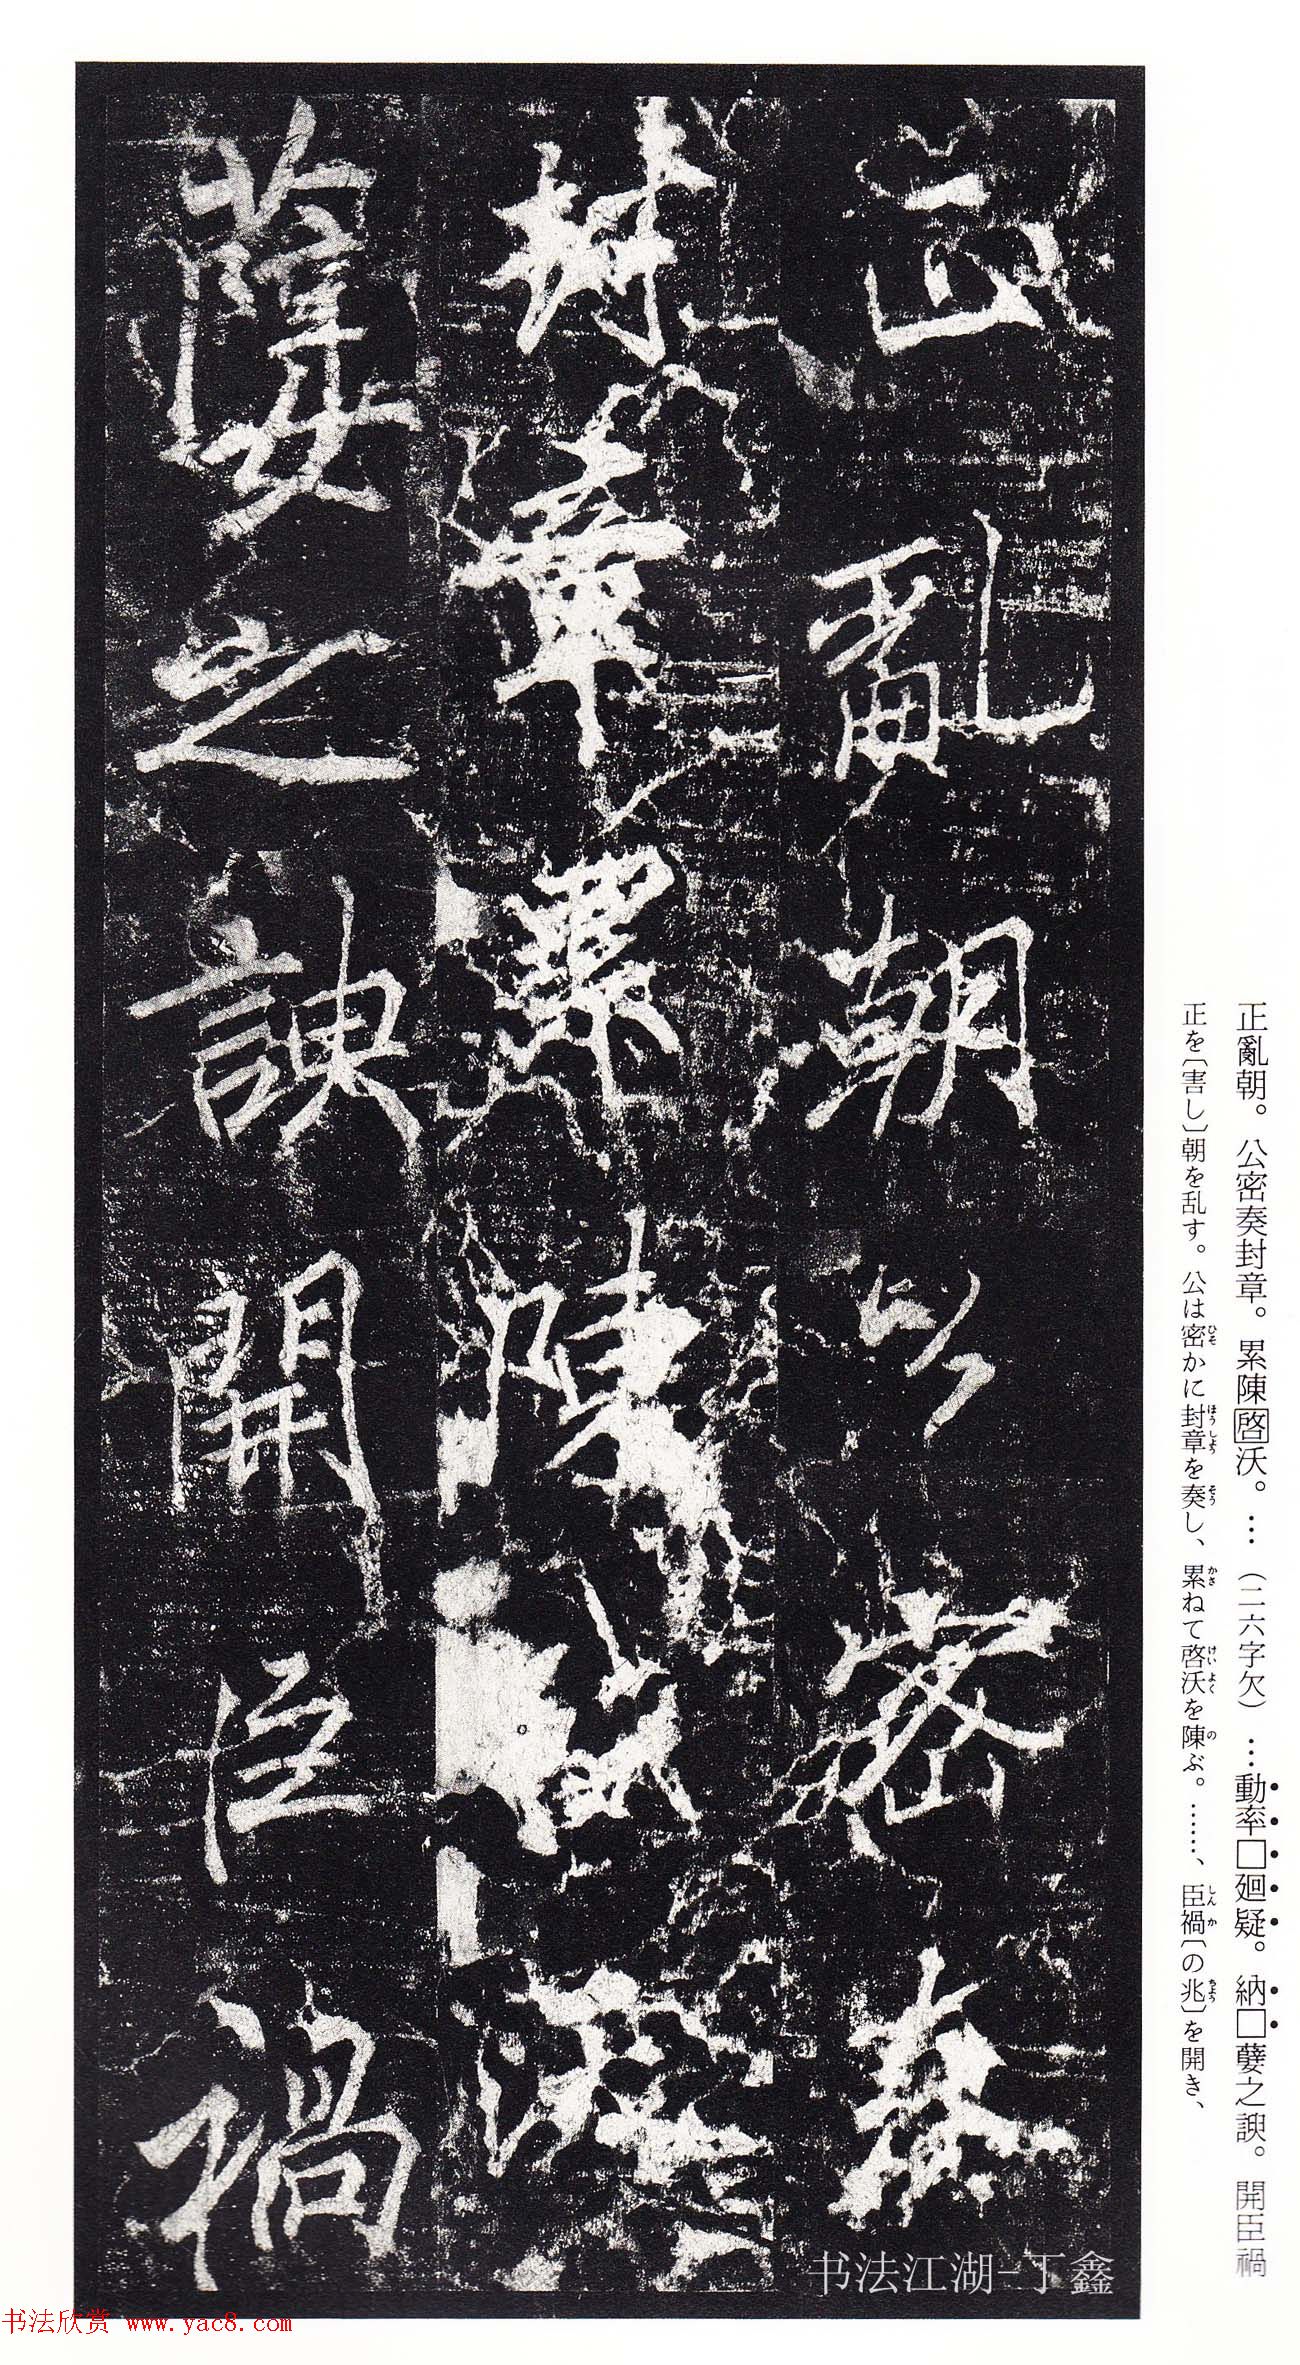 正亂朝。公密奏封章。累陳啓沃。…(二六字欠)…動率□廻疑。納□孽之諛。開臣禍
正を〔害し〕朝を乱す。公は密かに封章を奏し、累ねて啓沃を陳ぶ。……、臣禍〔の兆〕を開き、
正亂朝公密奏
封章累陳啓沃
孽之諛開臣禍
书法江湖-丁鑫
书法欣赏 www.yac8.com